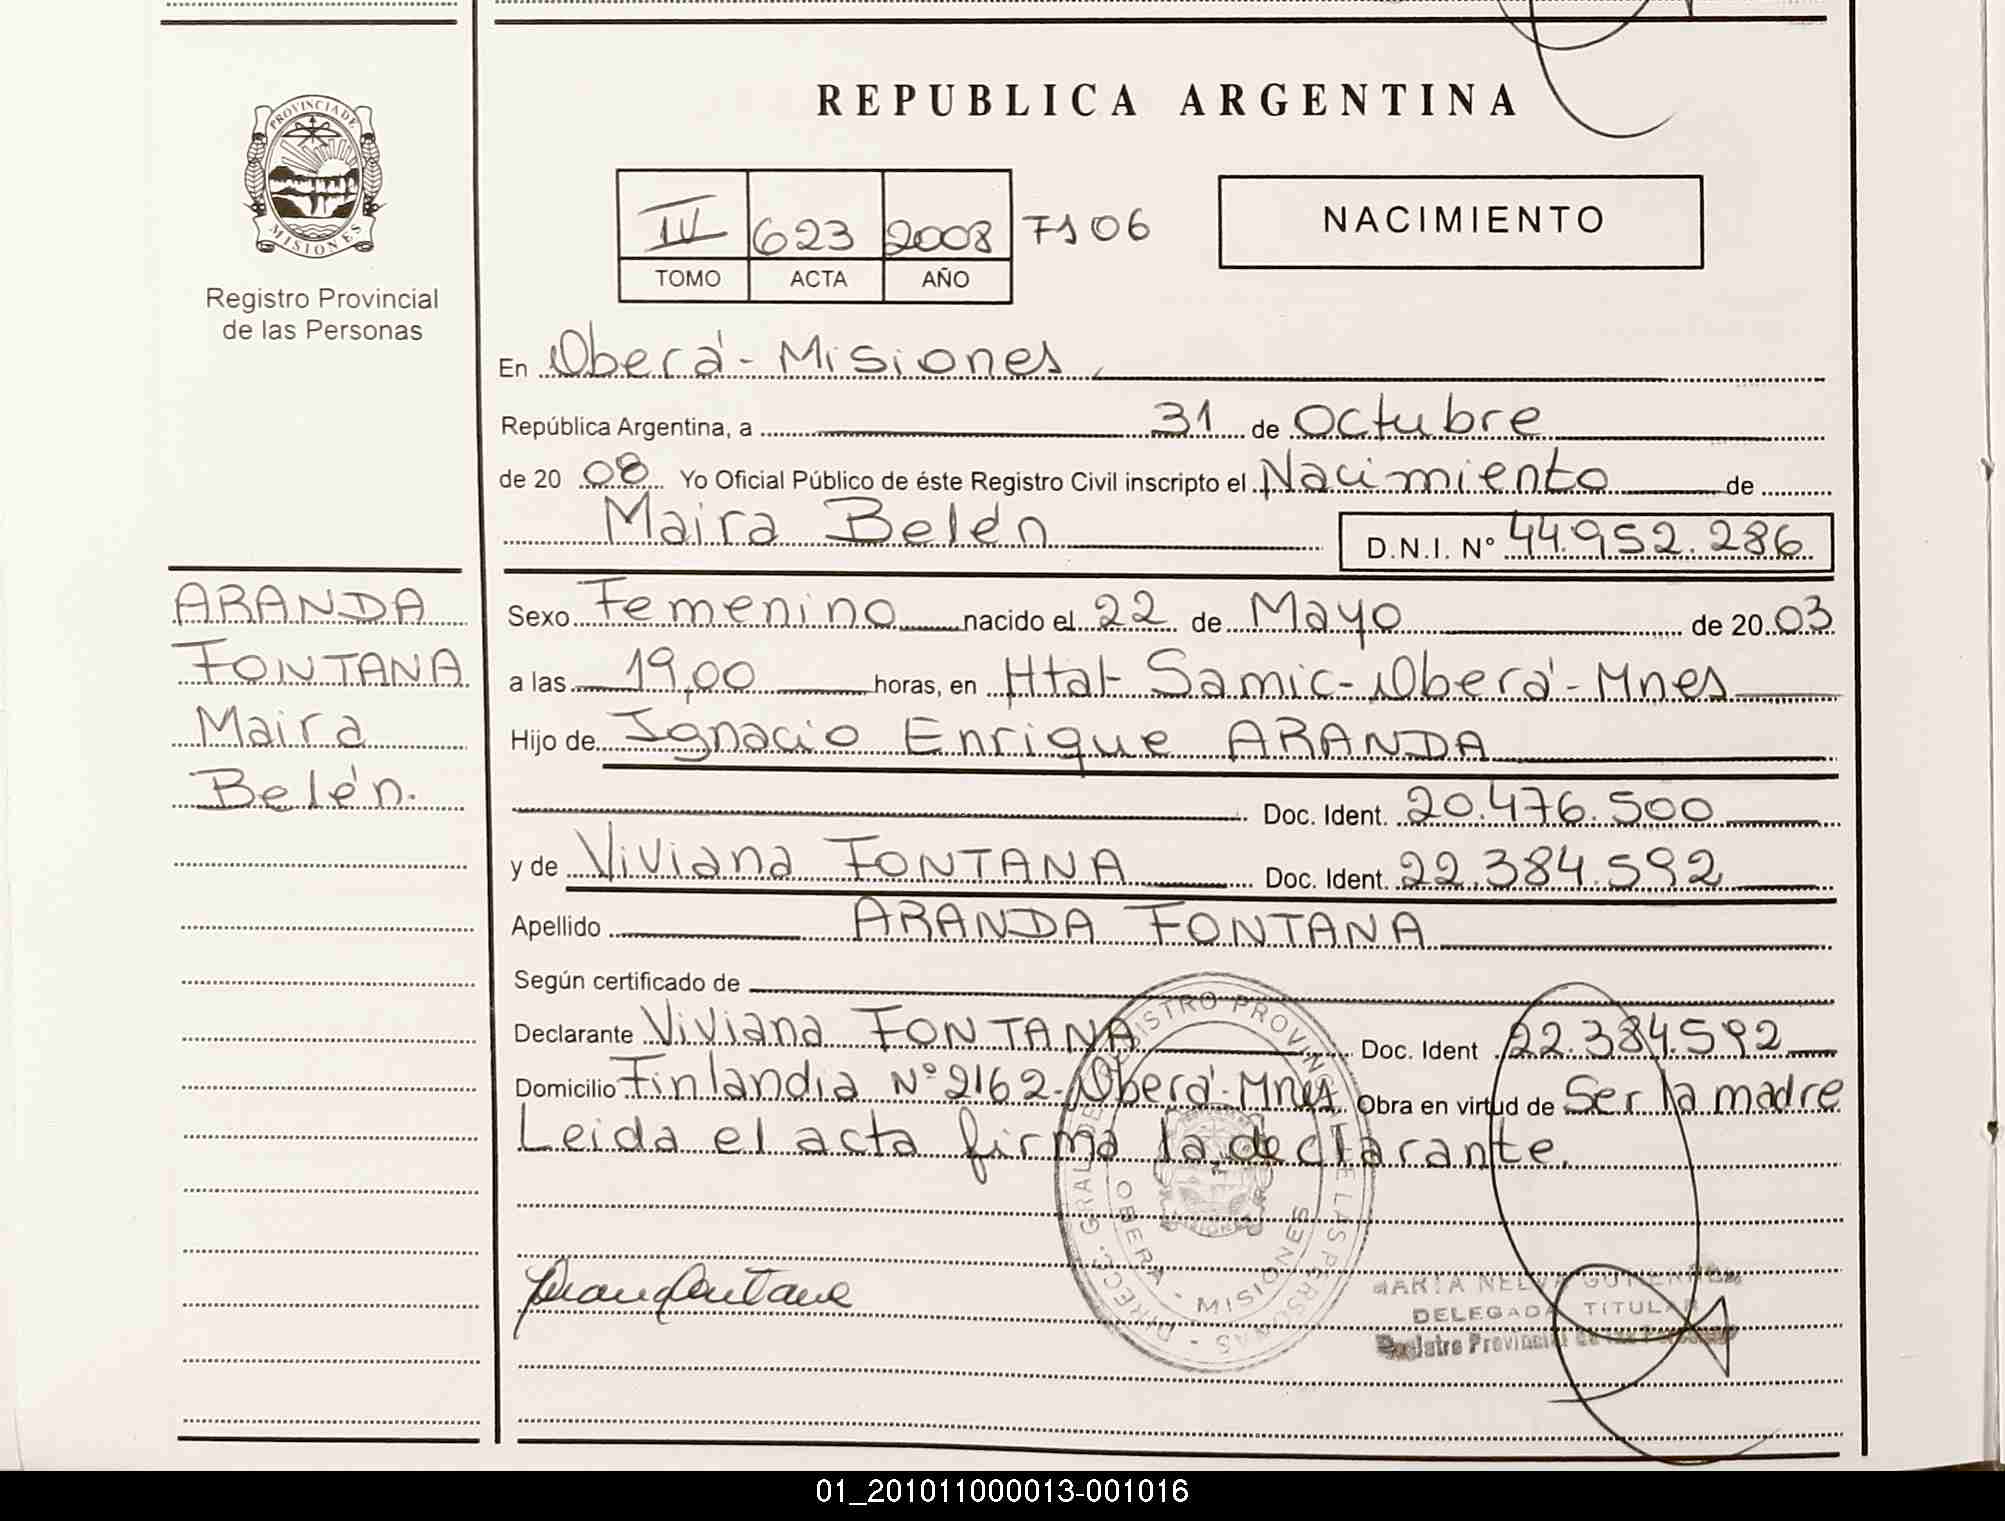 REPUBLICA ARGENTINA
PROVINCIA DE
MISIONES
Registro Provincial
de las Personas
IV 623 2008 7106
TOMO ACTA AÑO
NACIMIENTO
En Oberá - Misiones
República Argentina, a 31 de Octubre
de 20 08 Yo Oficial Público de éste Registro Civil inscripto el Nacimiento de
Maira Belén D.N.I. N° 44.952.286
ARANDA
FONTANA
Maira
Belén.
Sexo Femenino nacido el 22 de Mayo de 20 03
a las 19,00 horas, en Htal Samic - Oberá - Mnes
Hijo de Ignacio Enrique ARANDA
Doc. Ident. 20.476.500
y de Viviana FONTANA Doc. Ident. 22.384.592
Apellido ARANDA FONTANA
Según certificado de
Declarante Viviana FONTANA Doc. Ident 22.384.592
Domicilio Finlandia N° 2162 - Oberá - Mnes Obra en virtud de Ser la madre
Leida el acta firma la declarante.
DIRECC. GRAL. DE REGISTRO PROVINCIAL DE LAS PERSONAS
OBERA - MISIONES
DELEGADA TITULAR
Registro Provincial de las Personas
01_201011000013-001016